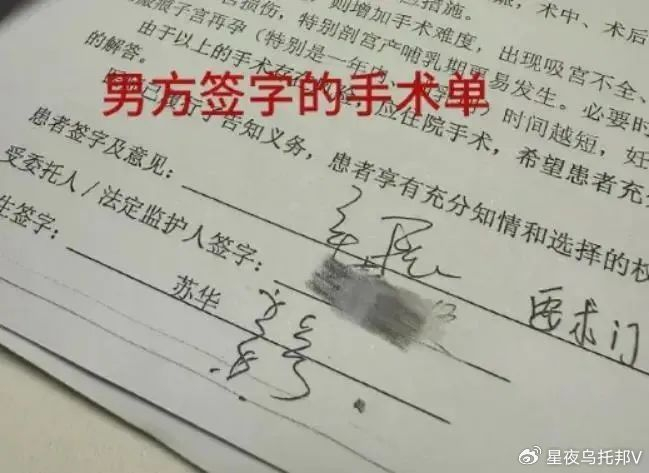 措施。
损伤，则增加手术难度，
术中、术后
瘢痕子宫再孕（特别是一年内
特别剖宫产哺乳期更易发生。必要时
出现吸宫不全、
由于以上的手术
时间越短，妊
的解答。
应住院手术，希望患者充
男方签字的手术单
告知义务，患者享有充分知情和选择的权
患者签字及意见：
要求门
受委托人/法定监护人签字：
生签字：
苏华
星夜乌托邦V